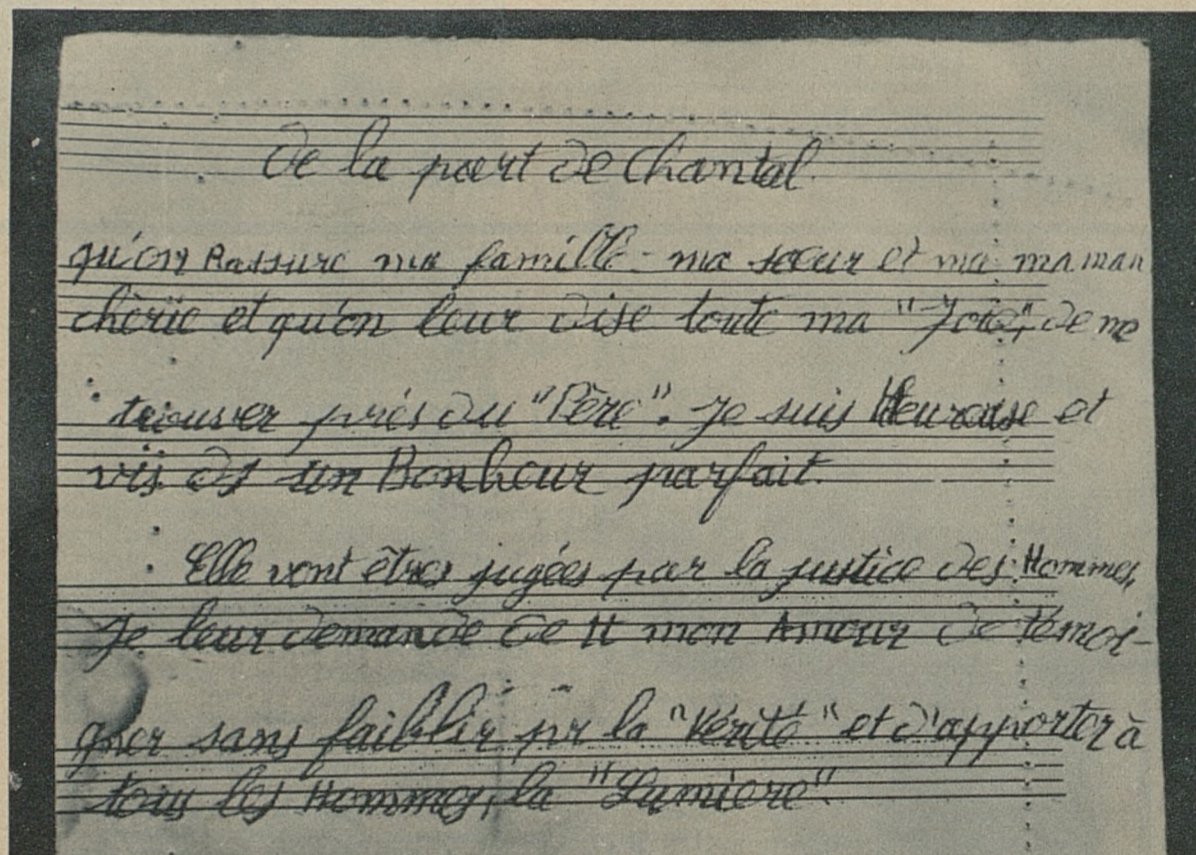 de la part de Chantal
qu'on Rassure ma famille - ma sœur et ma maman
chérie et qu'on leur dise toute ma "Joie", de me
trouver près du "Père". Je suis Heureuse et
vis ds un Bonheur parfait.
Elle vont êtres jugées par la justice des Hommes,
Je leur demande de tt mon Amour de témoi-
gner sans faiblir pr la "Vérité" et d'apporter à
tous les Hommes, la "Lumière"